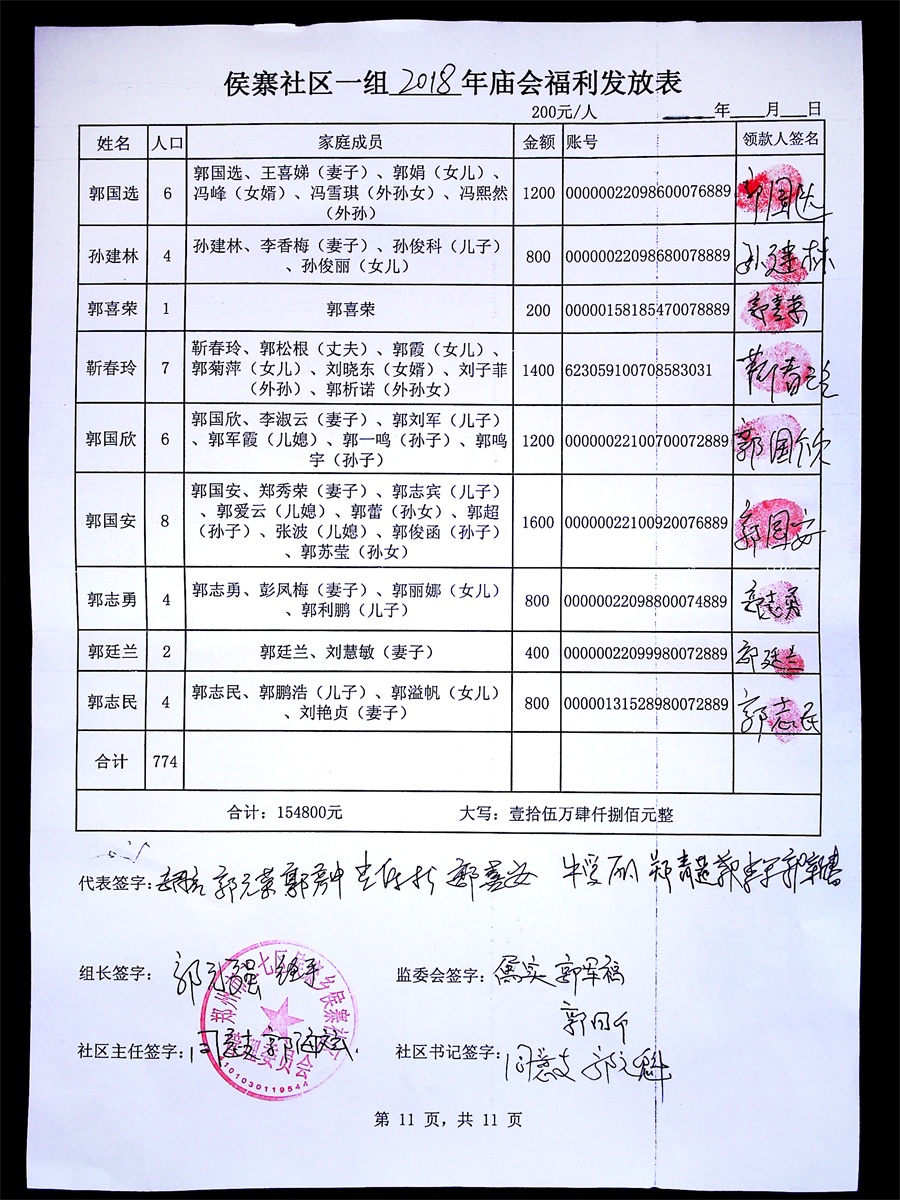 侯寨社区一组 2018 年庙会福利发放表
200元/人 年 月 日
姓名 人口 家庭成员 金额 账号 领款人签名
郭国选 6 郭国选、王喜娣（妻子）、郭娟（女儿）、 1200 00000022098600076889 郭国选
冯峰（女婿）、冯雪琪（外孙女）、冯熙然
（外孙）
孙建林 4 孙建林、李香梅（妻子）、孙俊科（儿子） 800 00000022098680078889 孙建林
、孙俊丽（女儿）
郭喜荣 1 郭喜荣 200 00000158185470078889 郭喜荣
靳春玲 7 靳春玲、郭松根（丈夫）、郭霞（女儿）、 1400 623059100708583031 靳春玲
郭菊萍（女儿）、刘晓东（女婿）、刘子菲
（外孙）、郭析诺（外孙女）
郭国欣 6 郭国欣、李淑云（妻子）、郭刘军（儿子） 1200 00000022100700072889 郭国欣
、郭军霞（儿媳）、郭一鸣（孙子）、郭鸣
宇（孙子）
郭国安 8 郭国安、郑秀荣（妻子）、郭志宾（儿子） 1600 00000022100920076889 郭国安
、郭爱云（儿媳）、郭蕾（孙女）、郭超
（孙子）、张波（儿媳）、郭俊函（孙子）
、郭苏莹（孙女）
郭志勇 4 郭志勇、彭凤梅（妻子）、郭丽娜（女儿） 800 00000022098800074889 郭志勇
、郭利鹏（儿子）
郭廷兰 2 郭廷兰、刘慧敏（妻子） 400 00000022099980072889 郭廷兰
郭志民 4 郭志民、郭鹏浩（儿子）、郭溢帆（女儿） 800 00000131528980072889 郭志民
、刘艳贞（妻子）
合计 774
合计：154800元 大写：壹拾伍万肆仟捌佰元整
代表签字： 郭元荣
组长签字： 监委会签字： 属实 郭军福
社区主任签字： 同意支 社区书记签字： 同意支 郭元魁
4101030119544
第 11 页，共 11 页